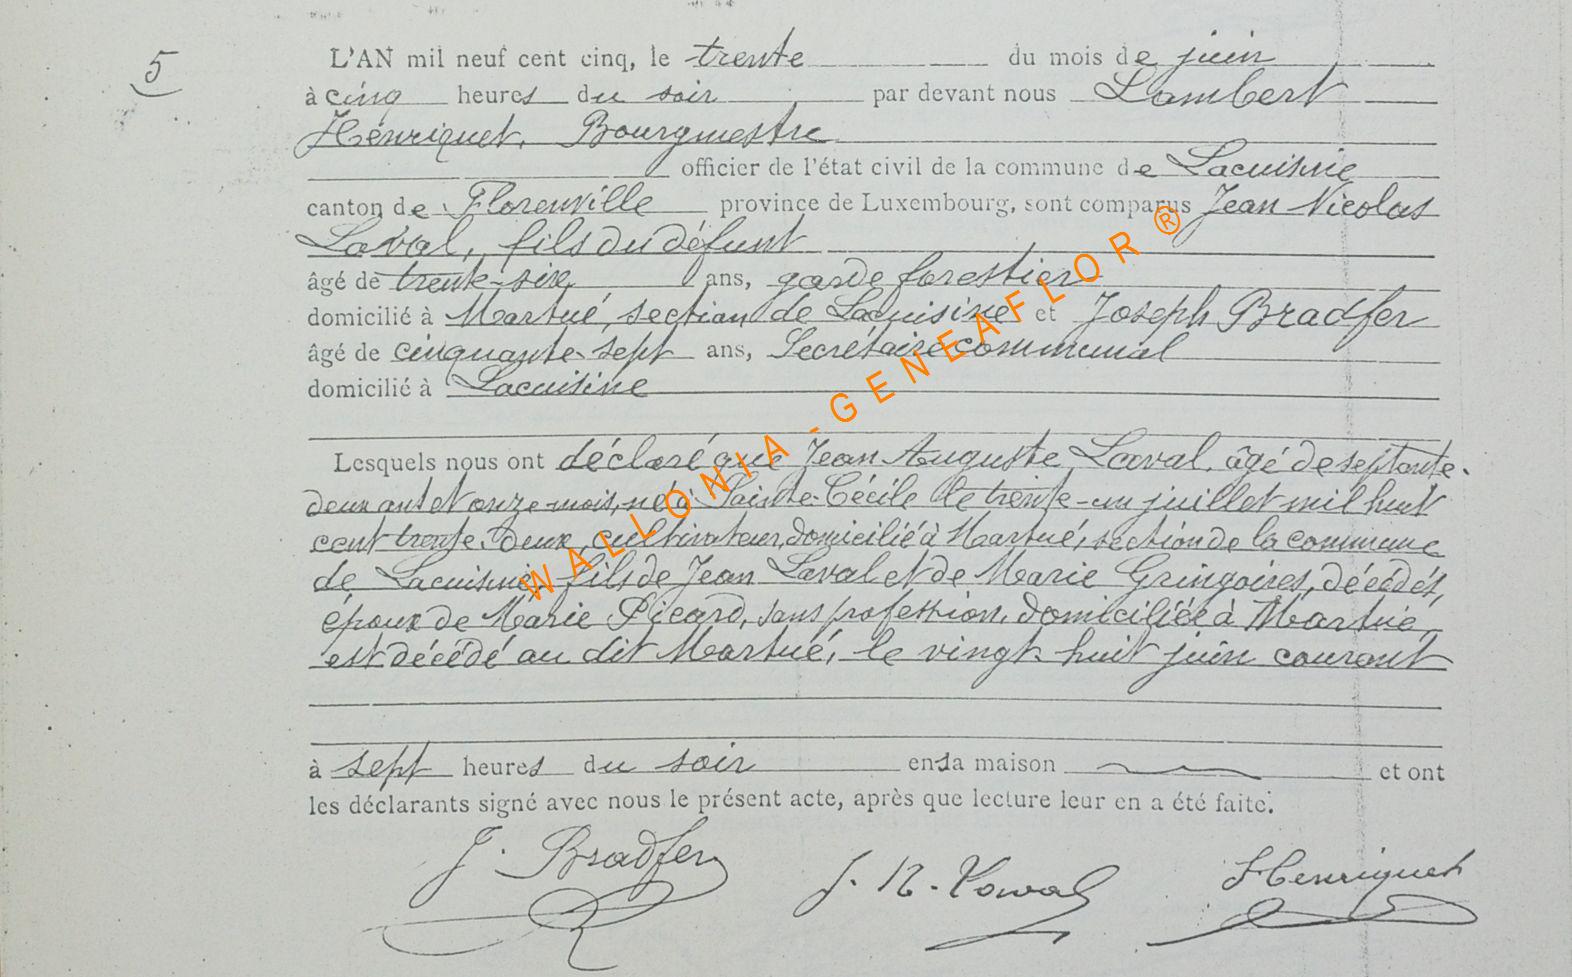 5
L'AN mil neuf cent cinq, le trente du mois de juin
à cinq heures du soir par devant nous Lambert
Henriquet, Bourgmestre
officier de l'état civil de la commune de Lacuisine
canton de Florenville province de Luxembourg, sont comparus Jean Nicolas
Laval, fils du défunt
âgé de trente-six ans, garde forestier
domicilié à Martué, section de Lacuisine et Joseph Bradfer
âgé de cinquante-sept ans, Secrétaire communal
domicilié à Lacuisine
Lesquels nous ont déclaré que Jean Auguste Laval, âgé de septante-
deux ans et onze mois, né à Sainte-Cécile le trente-un juillet mil huit
cent trente-deux, cultivateur, domicilié à Martué, section de la commune
de Lacuisine, fils de Jean Laval et de Marie Gringoires, décédés,
époux de Marie Picard, sans profession, domiciliée à Martué,
est décédé au dit Martué, le vingt-huit juin courant
à sept heures du soir en sa maison et ont
les déclarants signé avec nous le présent acte, après que lecture leur en a été faite.
J. Bradfer J. N. Laval Henriquet
WALLONIA - GENEAFLOR ®